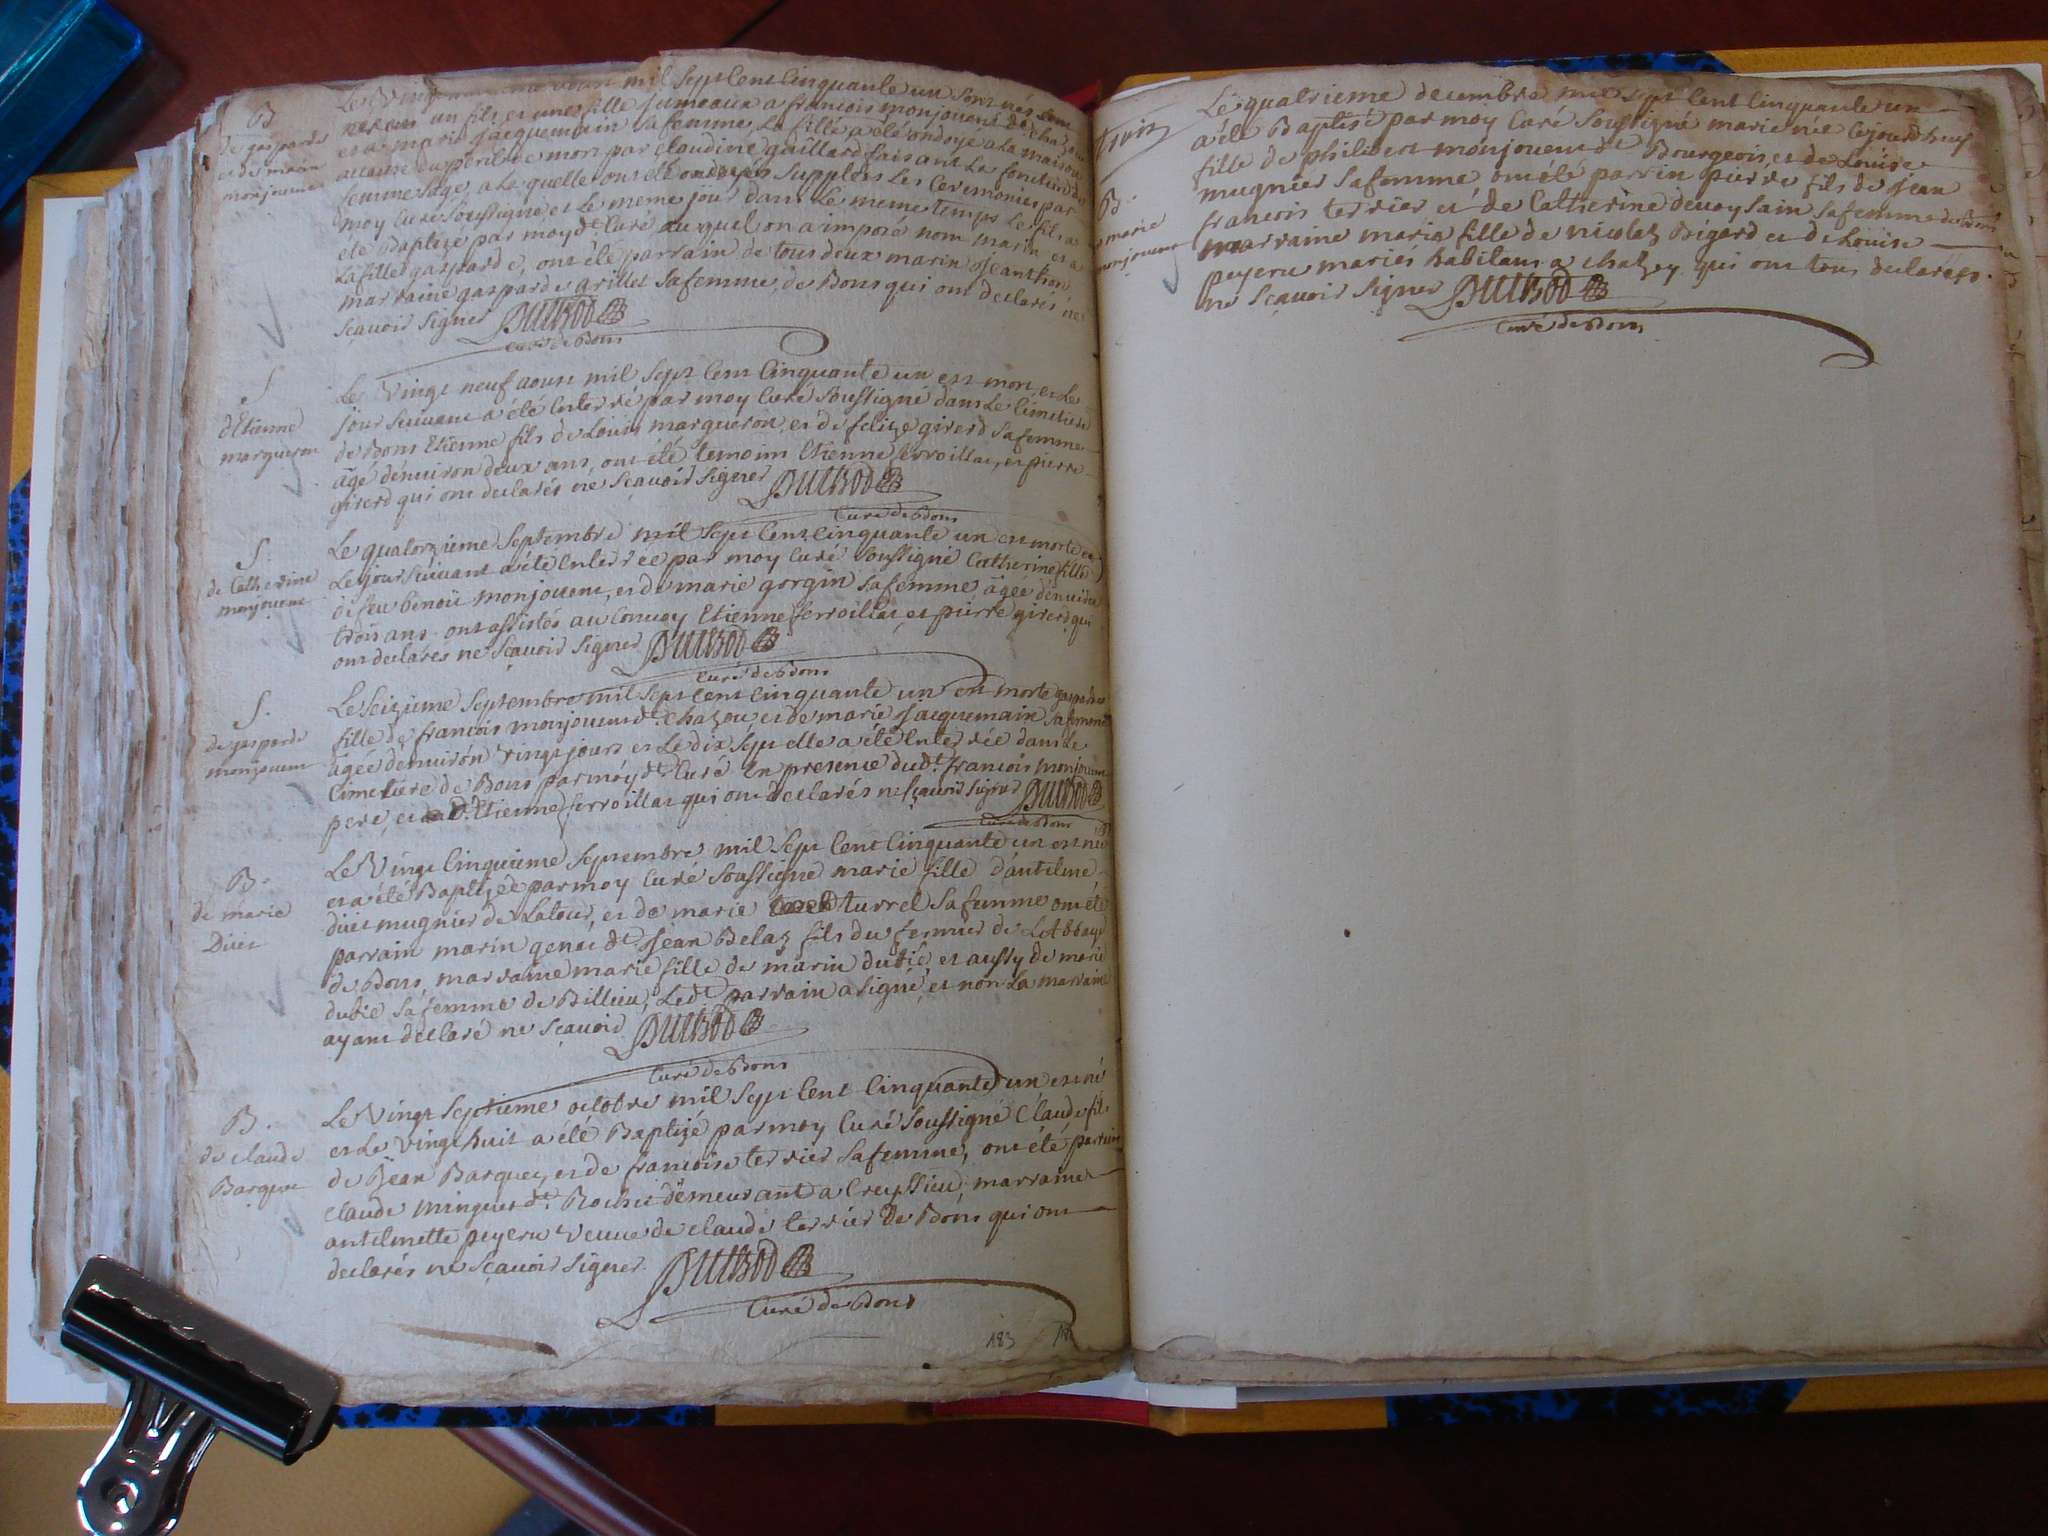 B
de gasparde
et de marin
monjouent
aoust mil Sept Cent Cinquante un Sont nés
un fils et une fille Jumeaux a francois monjouent dt. chazou
et a marie Jacquemain Safemme, La fille a été ondoyé a La maison
acause du peril de mort par claudine gaillard faisant La fonction de
femme Sage, a La quelle ont été Supplées Les Ceremonies par
moy Curé Soussigné et Le meme jour dans Le meme temps Le fils a
été Baptizé par moy dt. Curé au quel on a imposé nom marin et a
La fille gasparde, ont été parrain de tous deux marin Jeantion
marraine gasparde grillet Safemme de Bons qui ont declarés ne
Scavoir Signer
Curé de Bons
S
d'Etienne
marqueron
Le Vingt neuf aoust mil Sept Cent Cinquante un est mort et Le
jour Suivant a été Enterré par moy Curé Soussigné dans Le Cimetiere
de Bons Etienne fils de Louis marqueron, et de felize girerd Safemme
agé d'environ deux ans, ont été temoins Etienne ferroillat, et pierre
girerd qui ont declarés ne Scavoir Signer
Curé de Bons
S.
de Catherine
monjouent
Le quatorzieme Septembre mil Sept Cent Cinquante un est morte et
Le jour Suivant a été Enterrée par moy Curé Soussigné Catherine fille
de feu benoit monjouent, et de marie gorgin Safemme agée d'environ
trois ans ont assistés au Convoy Etienne ferroillat, et pierre girerd qui
ont declarés ne Scavoir Signer
Curé de Bons
S.
de gasparde
monjouent
Le Seizieme Septembre mil Sept Cent Cinquante un est morte gasparde
fille de francois monjouent dt. Chazou, et de marie Jacquemain Safemme
agée d'environ vingt jours et Le dix Sept elle a été Enterrée dans Le
Cimetiere de Bons par moy dt. Curé En presence dudt. francois monjouent
pere, et d'Etienne ferroillat qui ont declarés ne Scavoir Signer
Curé de Bons
B.
de marie
Diiet
Le Vingt Cinquieme Septembre mil Sept Cent Cinquante un est née
et a été Baptizée par moy Curé Soussigné marie fille d'antelme
diiet mugnier de Latour, et de marie turrel Safemme ont été
parrain marin genoi dt. Jean Belaz fils du fermier de L'Abbaye
de Bons, marraine marie fille de marin dutié, et aussy de marie
dutié Safemme de Billieu, Ledt. parrain a Signé, et non La marraine
ayant declaré ne Scavoir
Curé de Bons
B.
de claude
Barquet
Le Vingt Septieme octobre mil Sept Cent Cinquante un est né
et Le Vingt huit a été Baptizé par moy Curé Soussigné Claude fils
de Jean Barquet, et de francoise terrier Safemme, ont été parrain
Claude minguet dt. Rochet demeurant a Creyssieu, marraine
antelmette peyeru Veuve de claude terrier De Bons qui ont
declarés ne Scavoir Signer.
Curé de Bons
183
B.
marie
monjouent
Le quatrieme decembre mil Sept Cent Cinquante un
a été Baptisé par moy Curé Soussigné marie née Cejourd'huy
fille de philibert monjouent dt. Bourgeois, et de Louise
mugnier Safemme ont été parrin pierre fils de Jean
francois terrier et de Catherine devoysain Safemme de Bons
marraine marie fille de nicolas Bigard et de Louise
peyeru mariés habitans a chazey qui ont tous declarés
ne Scavoir Signer
Curé de Bons